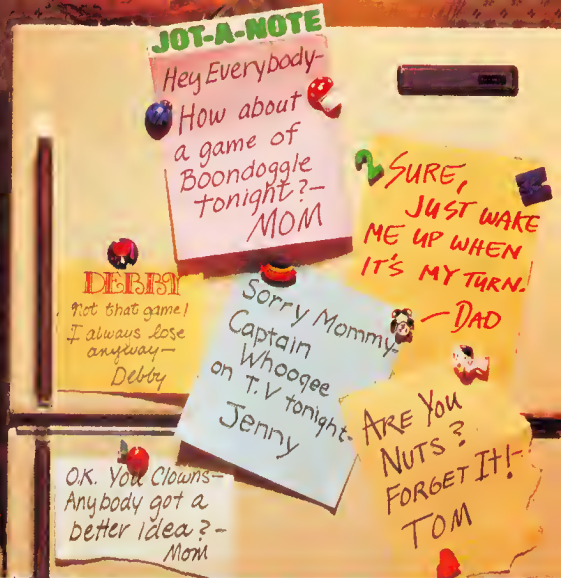 JOT-A-NOTE
Hey Everybody-
How about
a game of
Boondoggle
tonight?-
MOM
2
SURE,
JUST WAKE
ME UP WHEN
IT'S MY TURN.
-DAD
DEBBY
not that game!
I always lose
anyway-
Debby
Sorry Mommy-
Captain
Whoogee
on T.V tonight-
Jenny
ARE YOU
NUTS?
FORGET It!-
TOM
O.K. You Clowns-
Anybody got a
better idea?-
Mom